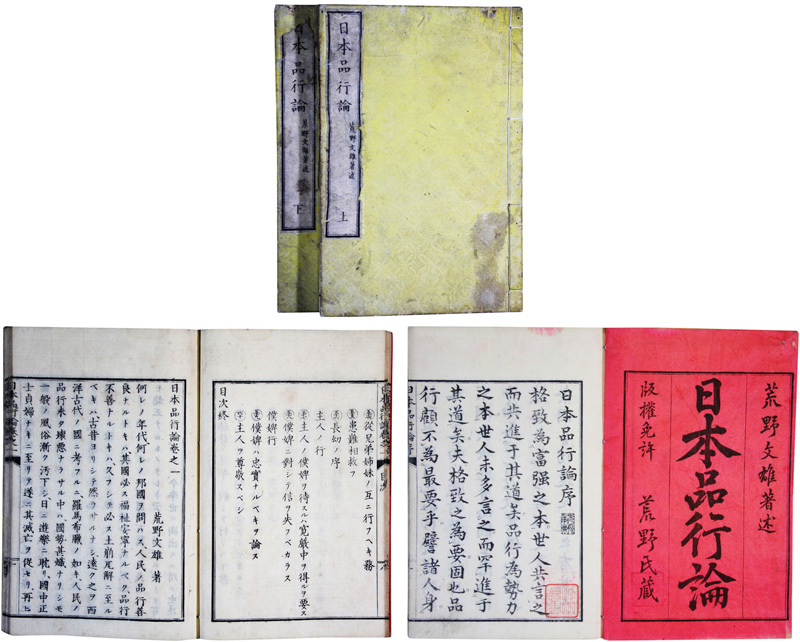 日本品行論
荒野文雄著述
上
日本品行論
荒野文雄著述
下
荒野文雄著述
日本品行論
版權免許 荒野氏蔵
日本品行論序
格致為富强之本世人共言之
而共進于其道矣品行為勢力
之本世人未多言之而罕進于
其道矣夫格致之為要固也品
行顧不為最要乎譬諸人身
從兄弟姉妹ノ互ニ行フヘキ務
患難相救フ
長幼ノ序
主人ノ行
主人ノ僕婢ヲ待スルハ寛嚴中ヲ得ルヲ要ス
僕婢ニ對シテ信ヲ失フベカラス
僕婢行
僕婢ハ忠實ナルベキヲ論ス
主人ヲ尊敬スベシ
目次終
日本品行論卷之一
荒野文雄 著
何レノ年代何レノ邦國ヲ問ハス人民ノ品行善
良ナルトキハ其國必ス福祉安寧ナルベク品行
不善ナルトキハ久フシテ必ス土崩瓦解ニ至ル
ベキハ古昔ヨリシテ然ラサルナシ遠ク之ヲ西
洋古代ノ國ニ考フルニ羅馬希臘ノ如キ人民ノ
品行未タ壊惡ナラサル中ハ國勢甚熾ナリシモ
一般ノ風俗漸ク汚下シ日ニ遊樂ニ耽リ國中正
士貞婦ナキニ至リテ遂ニ其滅亡ヲ促セリ再ヒ